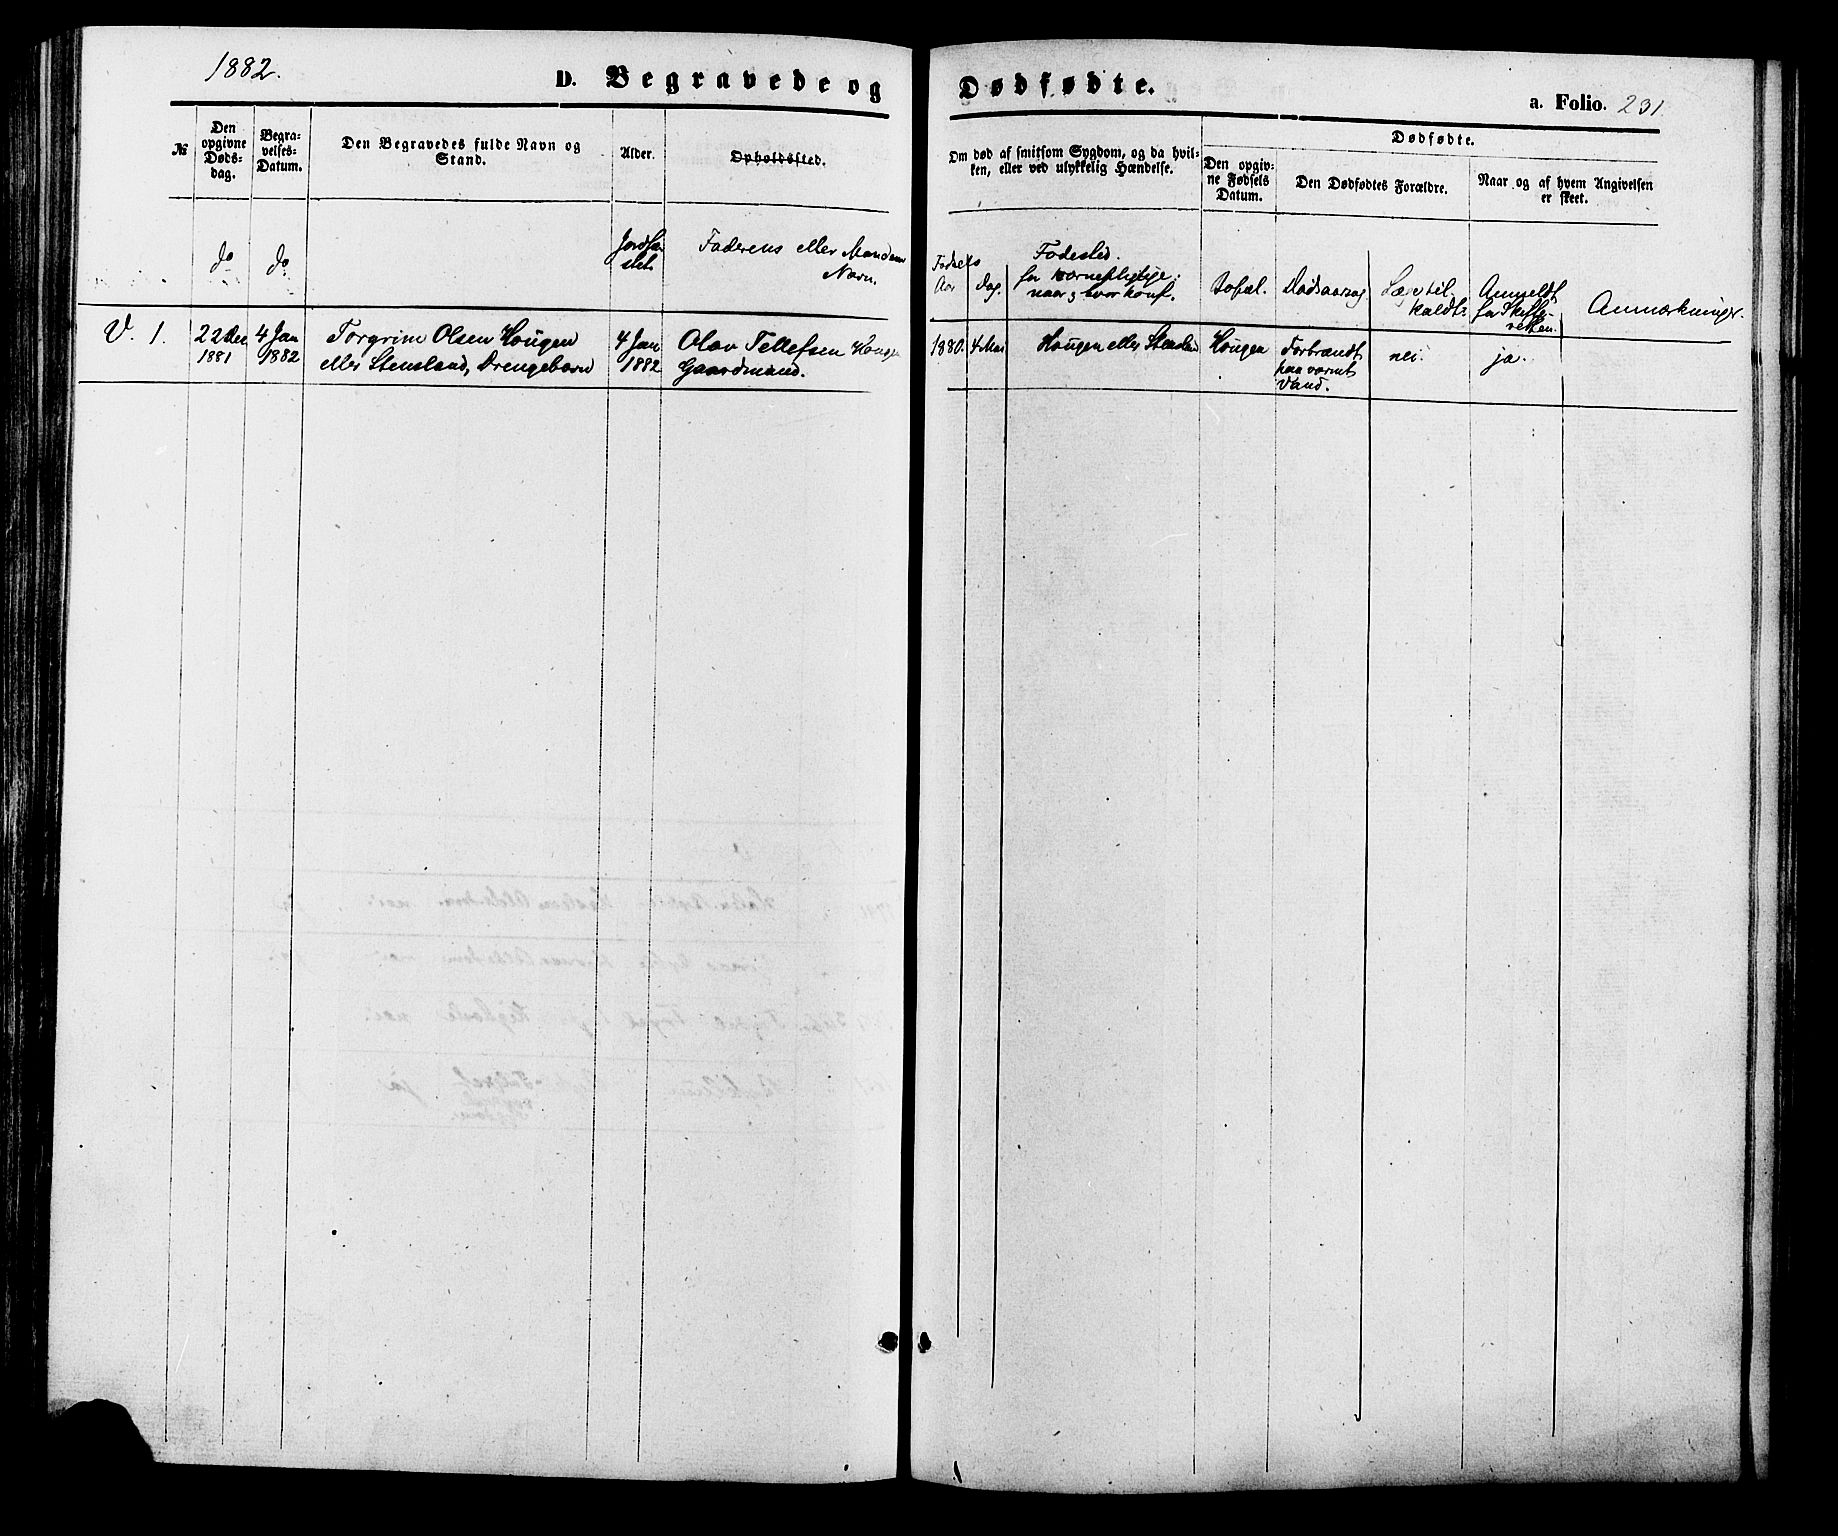 1882.
D. Begravede og Dødfødte.
a. Folio. 231.
№
Den opgivne Døds-dag.
Begra-velses-Datum.
Den Begravedes fulde Navn og Stand.
Alder.
Opholdssted.
Om død af smitsom Sygdom, og da hvil-
ken, eller ved ulykkelig Hændelse.
Dødfødte.
Den opgiv-
ne Fødsels
Datum.
Den Dødfødtes Forældre.
Naar og af hvem Angivelsen
er skeet.
do
do
Jordfæ-
stet.
Faderens eller Mandens
Navn.
Fødsels
Aar
Dag.
Fødested.
for værnepligtige:
naar og hvor konf.
Opho.
Dødsaarsag
Læge til-
kaldt.
Anmeldt
for Skifte-
retten.
Anmærkninger.
V. 1.
22 Dec
1881
4 Jan
1882
Torgrim Olsen Hougen
eller Stensland, Drengebarn
4 Jan
1882
Olav Tellefsen Hougen
Gaardmand.
1880.
4 Mai
Hougen eller Stensland
Hougen
Forbrændt
paa varmt
Vand.
nei.
ja.